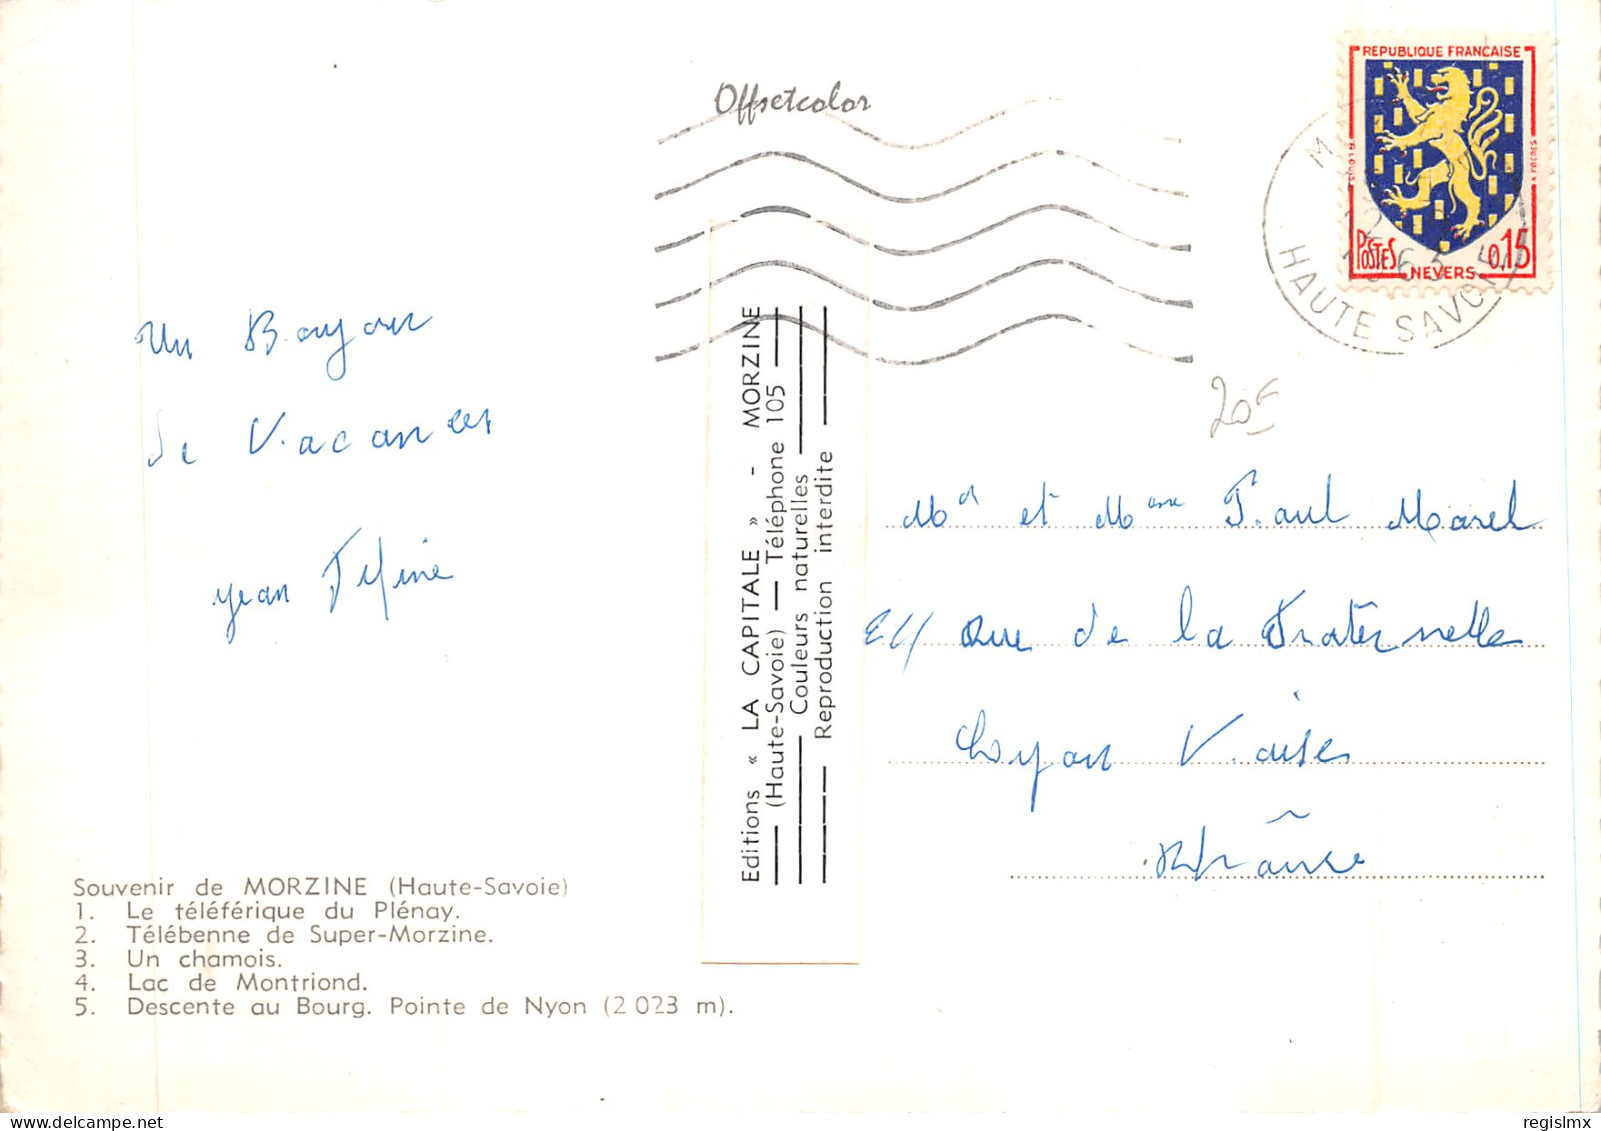 Offsetcolor
REPUBLIQUE FRANÇAISE
POSTES
0,15
NEVERS
HAUTE SAVOIE
Un Bonjour
de Vacances
Jean
20F
Mr et Mme Paul Morel
Rue de la Fraternelle
Lyon Vaise
Rhône
Editions « LA CAPITALE » - MORZINE
(Haute-Savoie) — Téléphone 105
Couleurs naturelles
Reproduction interdite
Souvenir de MORZINE (Haute-Savoie)
1. Le téléférique du Plénay.
2. Télébenne de Super-Morzine.
3. Un chamois.
4. Lac de Montriond.
5. Descente au Bourg. Pointe de Nyon (2 023 m).
regislmx